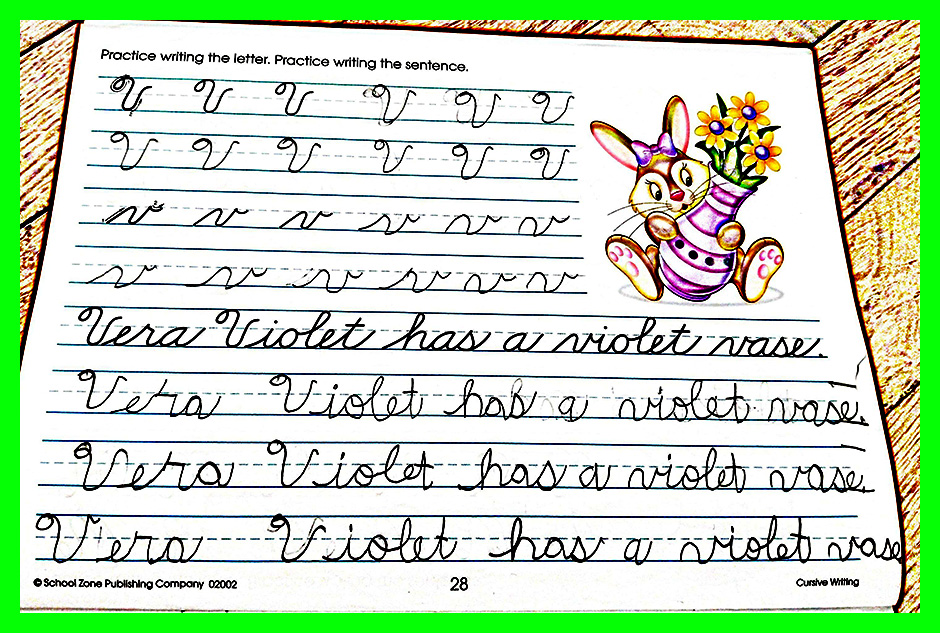 Practice writing the letter. Practice writing the sentence.
V V V V V V
V V V V V V
v v v v v v
v v v v v v
Vera Violet has a violet vase.
Vera Violet has a violet vase.
Vera Violet has a violet vase.
Vera Violet has a violet vase
© School Zone Publishing Company 02002 28 Cursive Writing